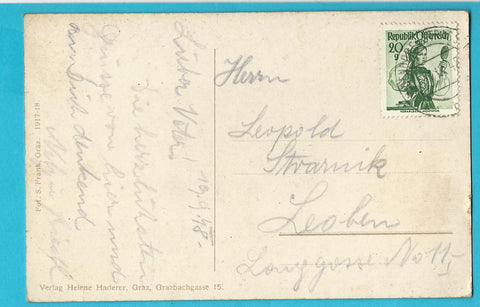 Lieber Vater! 19.9.48.
Die herzlichsten
Grüsse von hier und
denkend
Herrn
Leopold
Stvarnik
Leoben
Langgasse No 11
Republik Österreich
20
g
Fot. S. Frank, Graz 1917-18
Verlag Helene Haderer, Graz, Grazbachgasse 15.